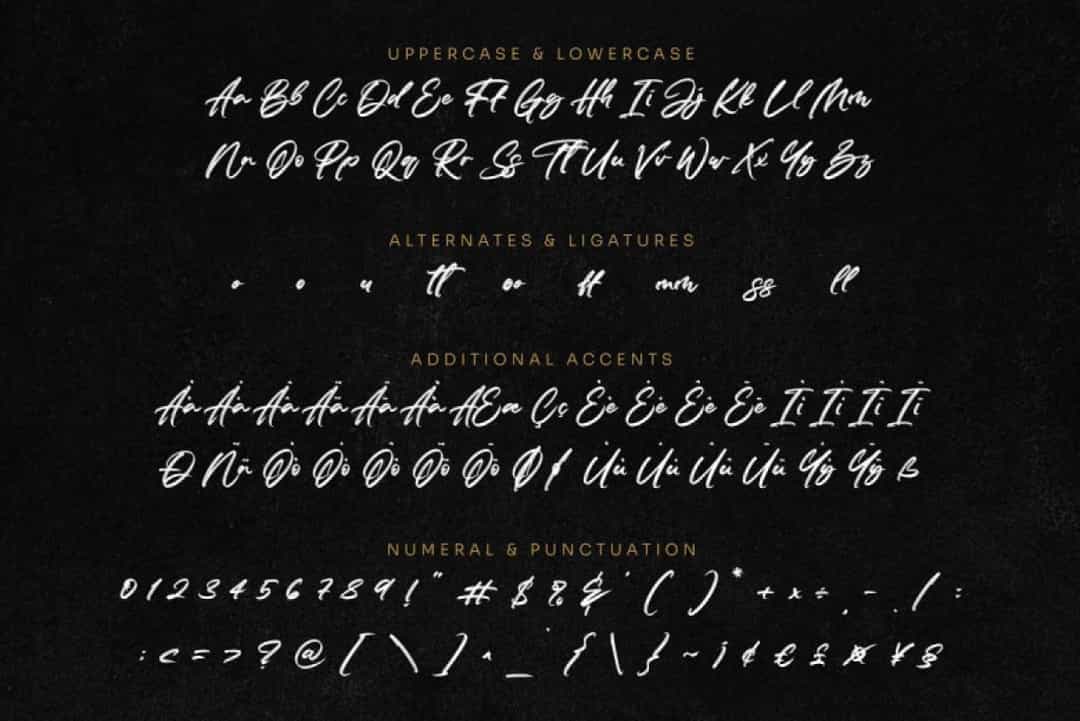 UPPERCASE & LOWERCASE
Aa Bb Cc Dd Ee Ff Gg Hh Ii Jj Kk Ll Mm
Nn Oo Pp Qq Rr Ss Tt Uu Vv Ww Xx Yy Zz
ALTERNATES & LIGATURES
o o u tt oo ff mm ss ll
ADDITIONAL ACCENTS
Àà Áá Ââ Ãã Ää Åå ÆEæ Çç Èè Éé Êê Ëë Ìì Íí Îî Ïï
Ð Ññ Òò Óó Ôô Õõ Öö Øø Ùù Úú Ûû Üü Ýý Ÿÿ ß
NUMERAL & PUNCTUATION
0 1 2 3 4 5 6 7 8 9 ! " # $ % & ' ( ) * + × ÷ , - . / :
; < = > ? @ [ \ ] ^ _ ` { | } ~ ¡ ¢ € £ ¤ ¥ §